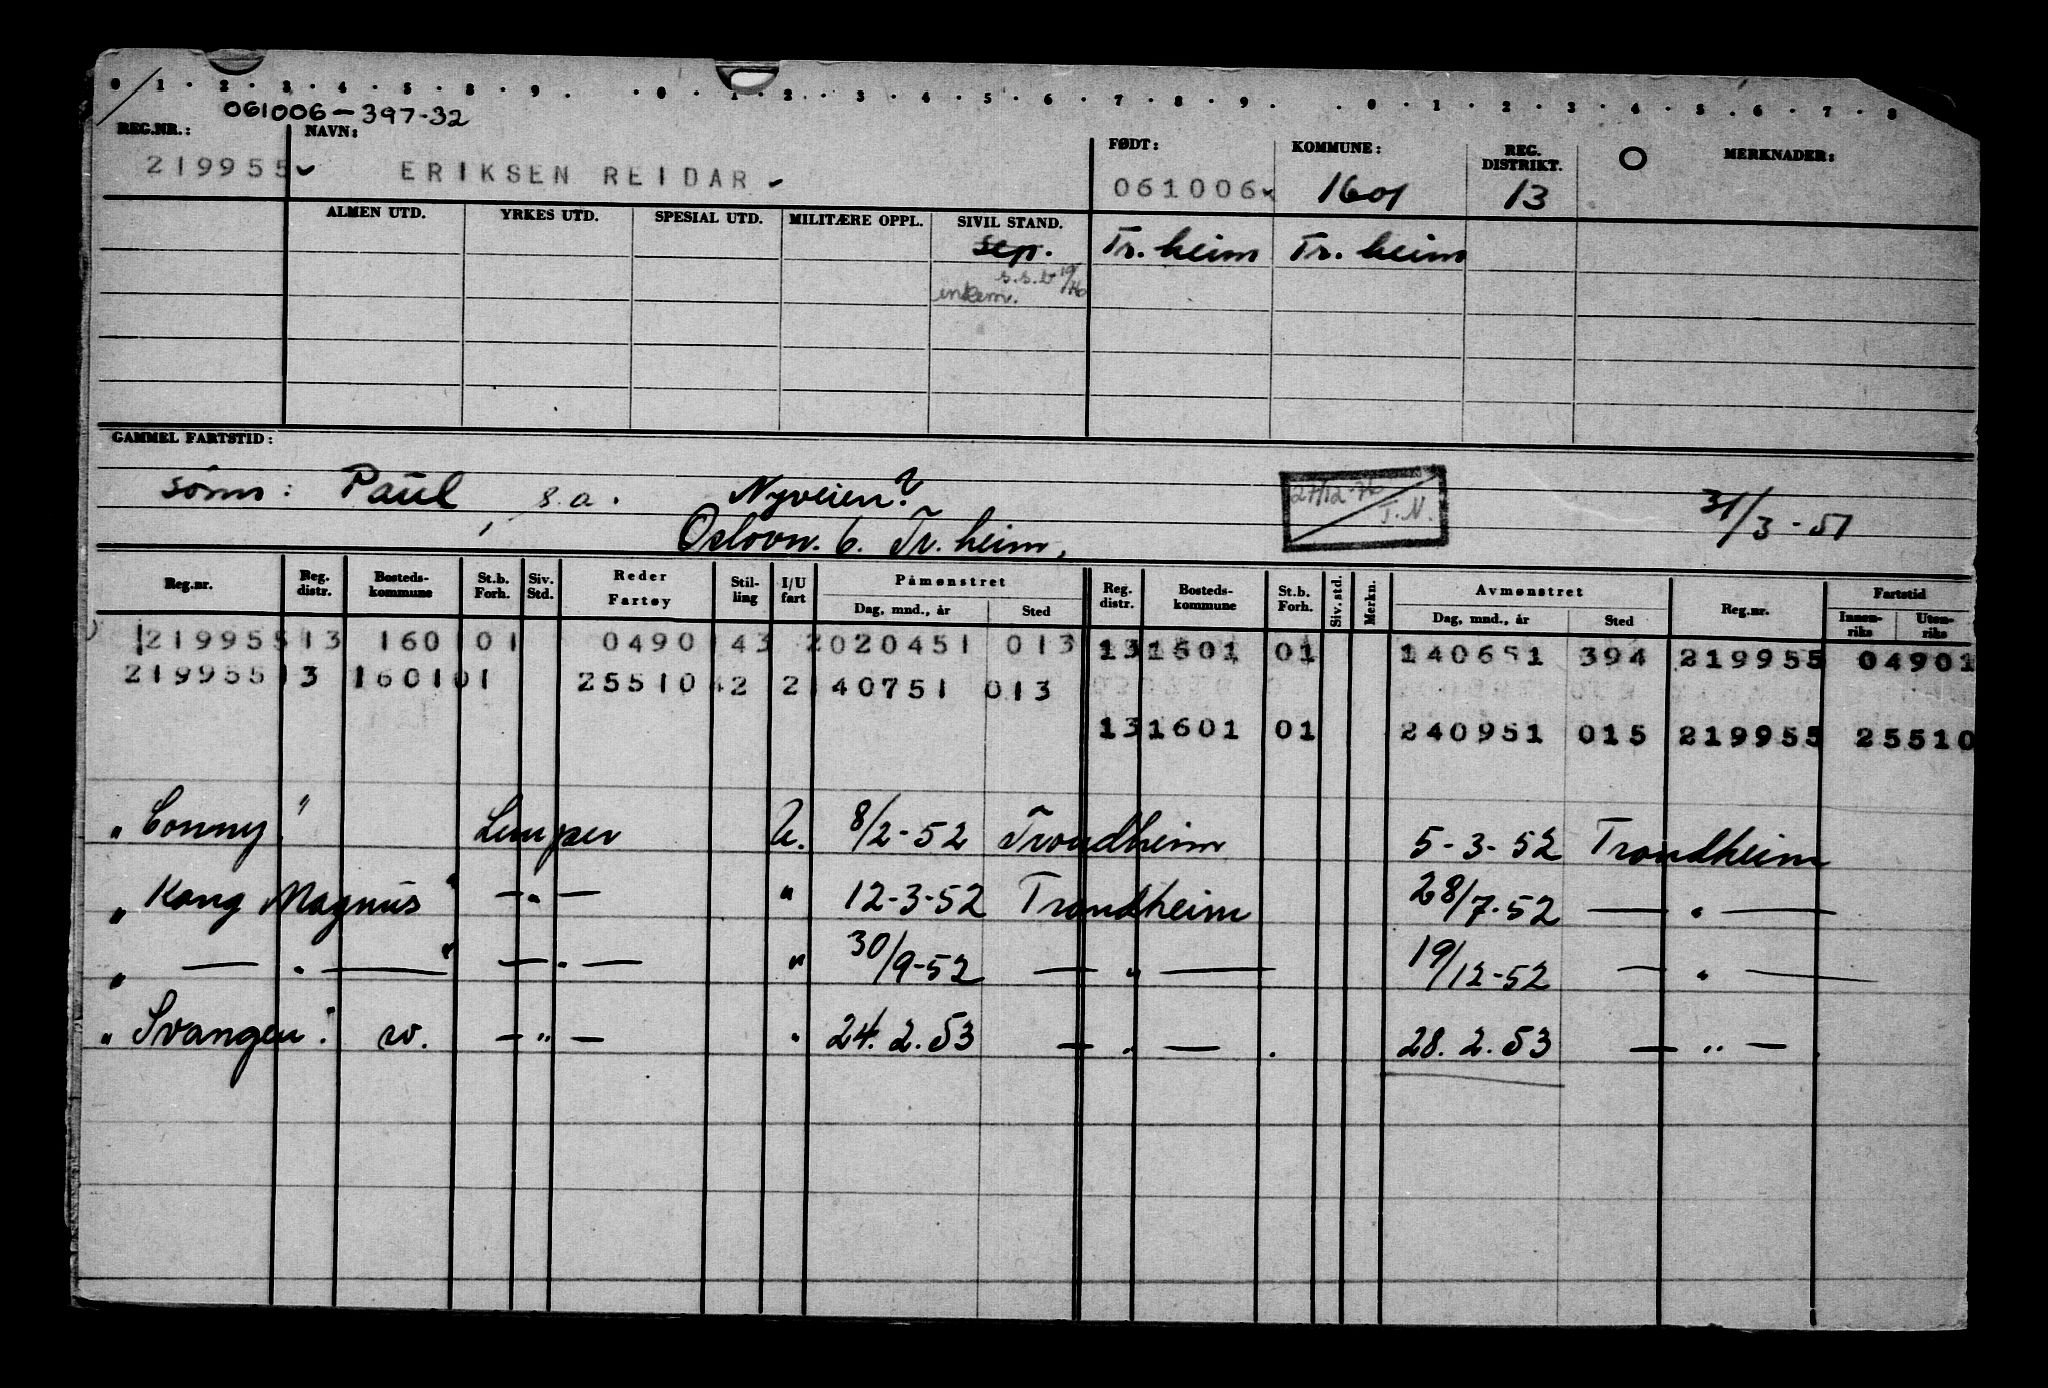 0 1 2 3 4 5 8 9 0 1 2 3 4 5 6 7 8 9 0 1 2 3 4 5 6 7 8
061006-397-32
REG.NR.: NAVN: FØDT: KOMMUNE: REG. DISTRIKT. O MERKNADER:
219955 ERIKSEN REIDAR 061006 1601 13
ALMEN UTD. YRKES UTD. SPESIAL UTD. MILITÆRE OPPL. SIVIL STAND.
sep. Tr. heim Tr. heim
s.s.b 19/46
enkem.
GAMMEL FARTSTID:
sønn: Paul s.a. Nyveien? 31/3-51
T.N.
Oslovn. 6. Tr. heim.
Reg.nr. Reg. distr. Bosteds-kommune St.b. Forh. Siv. Std. Reder Fartøy Stil-ling I/U fart Påmønstret Reg. distr. Bosteds-kommune St.b. Forh. Siv. std. Merkn. Avmønstret Reg.nr. Fartstid
Dag, mnd., år Sted Dag, mnd., år Sted Innen-riks Uten-riks
219955 13 1601 01 0490 143 2 020451 013 13 1601 01 140651 394 219955 04901
219955 13 1601 01 25510 42 2 140751 013
13 1601 01 240951 015 219955 25510
"Conny" Lemper U. 8/2-52 Trondheim 5-3-52 Trondheim
"Kong Magnus" — " — " 12-3-52 Trondheim 28/7-52 — " —
" — " — " — " — " 30/9-52 — " — 19/12-52 — " —
"Svangen". rv. — " — " 24.2.53 — " — . 28.2.53 — " — .